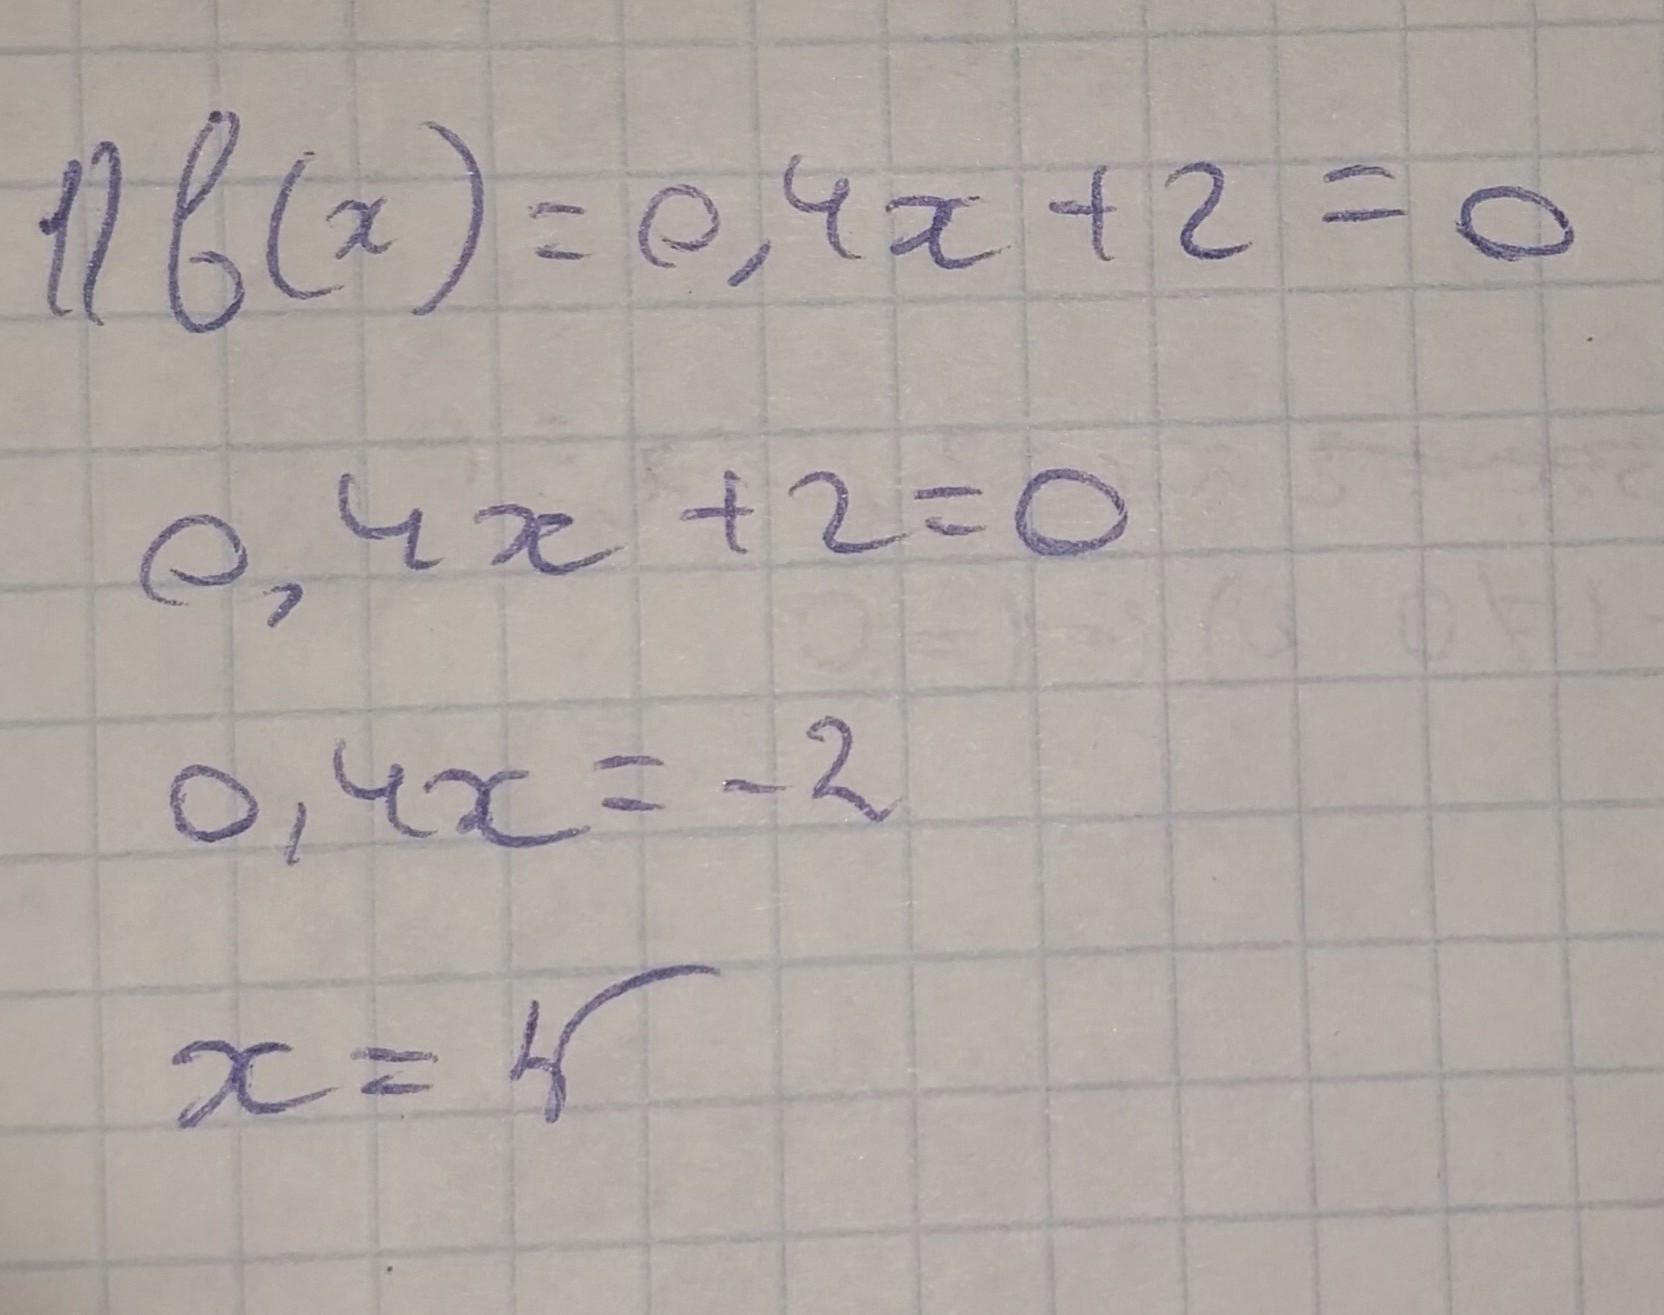 1) f(x) = 0,4x + 2 = 0
0,4x + 2 = 0
0,4x = -2
x = 5